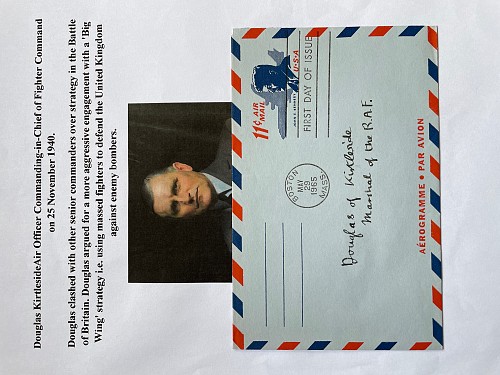 Douglas KirtlesideAir Officer Commanding-in-Chief of Fighter Command
on 25 November 1940.
Douglas clashed with other senior commanders over strategy in the Battle
of Britain. Douglas argued for a more aggressive engagement with a 'Big
Wing' strategy i.e. using massed fighters to defend the United Kingdom
against enemy bombers.
11¢ AIR
MAIL
U·S·A
FIRST DAY OF ISSUE
BOSTON
MAY
29
1965
MASS.
Douglas of Kirtleside
Marshal of the R.A.F.
AÉROGRAMME • PAR AVION